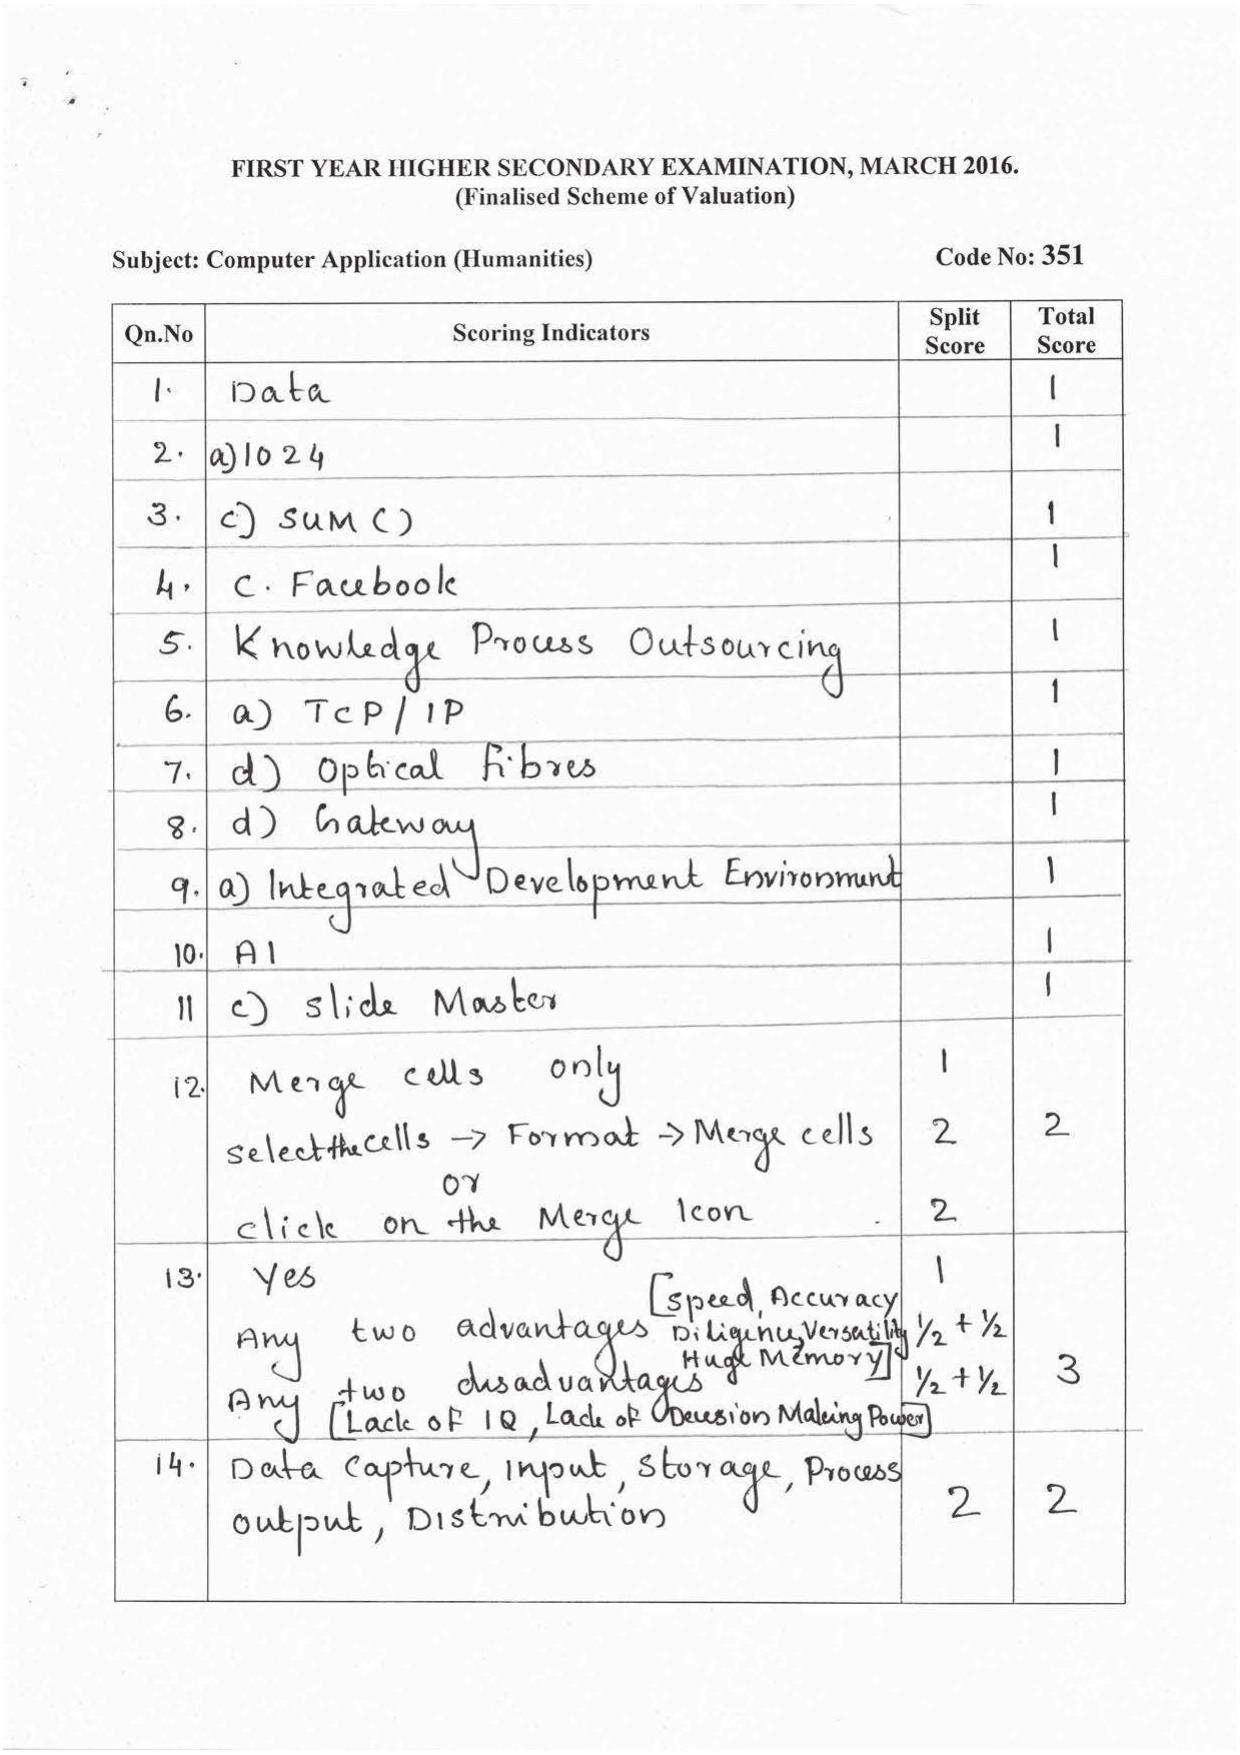 FIRST YEAR HIGHER SECONDARY EXAMINATION, MARCH 2016.
(Finalised Scheme of Valuation)
Subject: Computer Application (Humanities) Code No: 351
Qn.No Scoring Indicators Split Score Total Score
1. Data 1
2. a) 1024 1
3. c) SUM() 1
4. C. Facebook 1
5. Knowledge Process Outsourcing 1
6. a) TCP/IP 1
7. d) Optical Fibres 1
8. d) Gateway 1
9. a) Integrated Development Environment 1
10. A1 1
11 c) Slide Master 1
12. Merge cells only 1
select the cells → Format → Merge cells 2 2
or
click on the Merge Icon 2
13. Yes 1
[speed, Accuracy
Any two advantages Diligence, Versatility ½ + ½
Huge Memory]
Any two disadvantages ½ + ½ 3
[Lack of IQ, Lack of Decesion Making Power]
14. Data Capture, input, storage, Process
output, Distribution 2 2